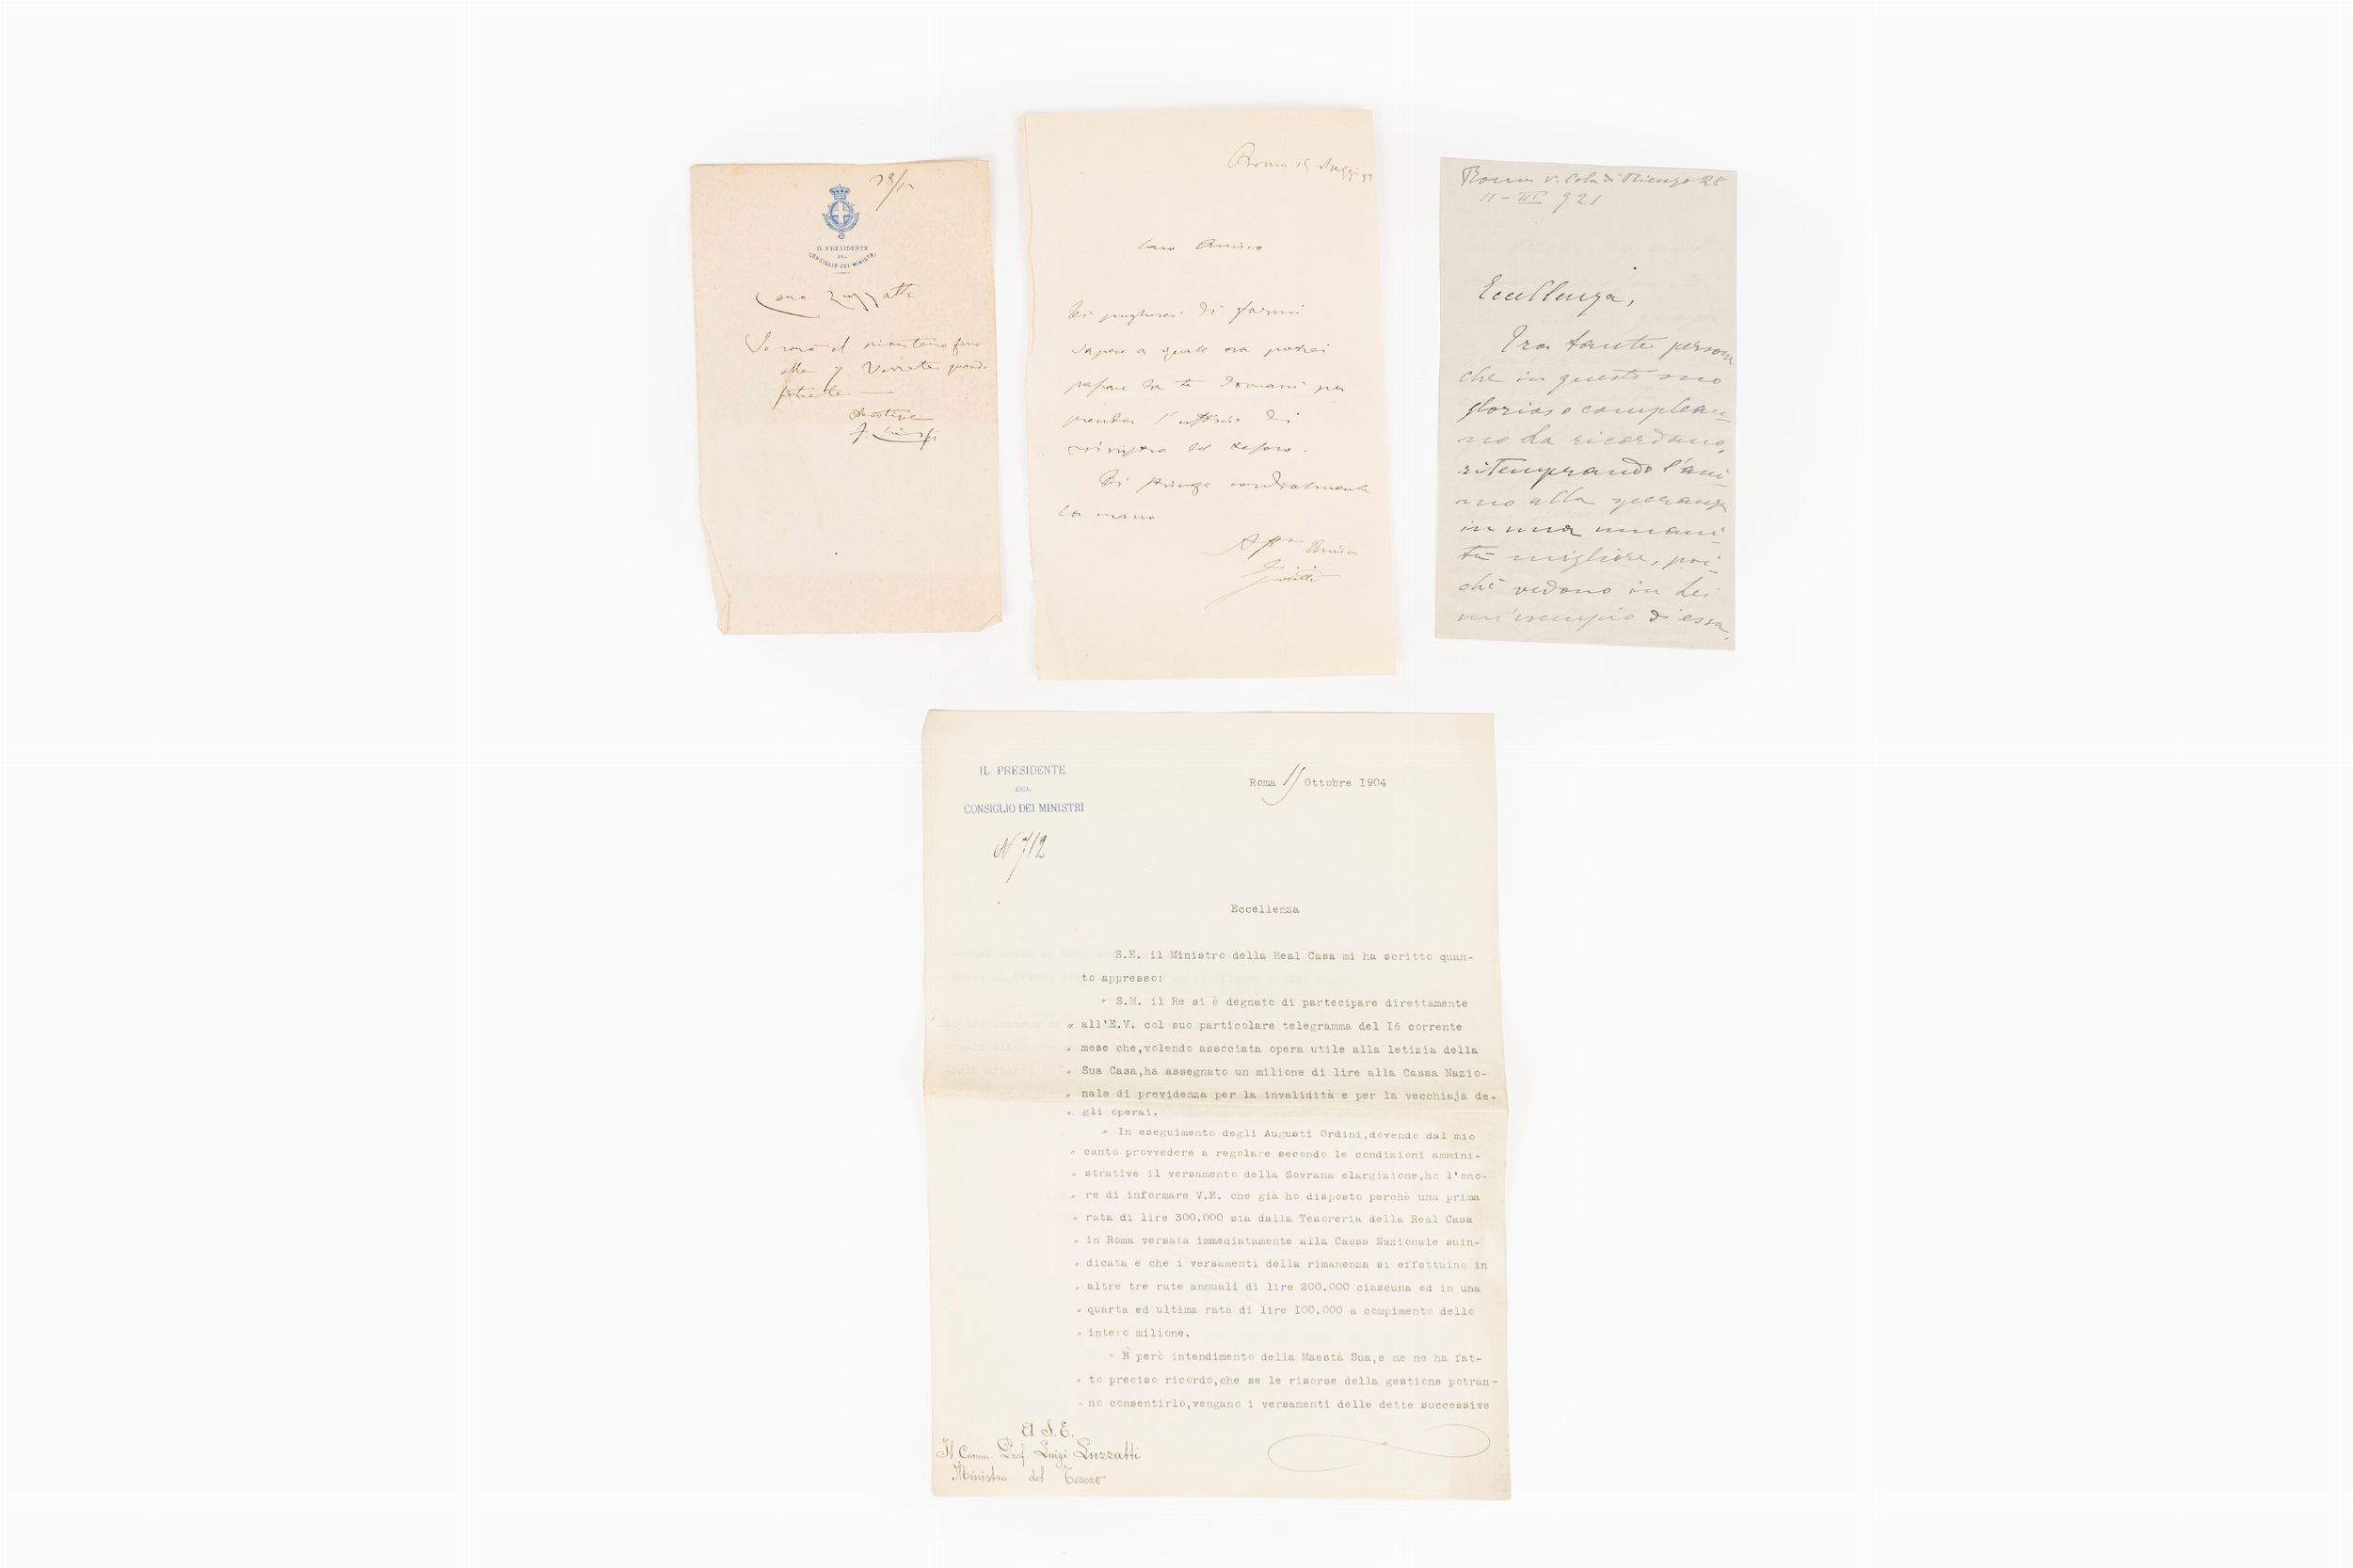 28/12
IL PRESIDENTE
DEL
CONSIGLIO DEI MINISTRI
Caro Luzzatti
Io sarò al ministero fino
alle 7. Venite quando
potrete
F. Crispi
Roma 15 Maggio
Caro Amico
Ti pregherei di farmi
sapere a quale ora potrei
passare da te domani per
prender l'uffizio di
ministro del tesoro.
Ti stringo cordialmente
la mano
Aff.mo Amico
Giolitti
Roma v. Cola di Rienzo 28
11 - III 921
Eccellenza,
Tra tante persone
che in questo suo
glorioso complean-
no La ricordano,
ritemprando l'ani-
mo alla speranza
in una umani-
tà migliore, poi-
chè vedono in Lei
un'esempio di essa,
IL PRESIDENTE
DEL
CONSIGLIO DEI MINISTRI
Roma 11 Ottobre I904
N 712
Eccellenza
S.E. il Ministro della Real Casa mi ha scritto quan-
to appresso:
" S.M. il Re si è degnato di partecipare direttamente
" all'E.V. col suo particolare telegramma del I6 corrente
" mese che,volendo associata opera utile alla letizia della
" Sua Casa,ha assegnato un milione di lire alla Cassa Nazio-
" nale di previdenza per la invalidità e per la vecchiaja de-
" gli operai.
" In eseguimento degli Augusti Ordini,dovendo dal mio
" canto provvedere a regolare secondo le condizioni ammini-
" strative il versamento della Sovrana elargizione,ho l'ono-
" re di informare V.E. che già ho disposto perchè una prima
" rata di lire 300.000 sia dalla Tesoreria della Real Casa
" in Roma versata immediatamente alla Cassa Nazionale suin-
" dicata e che i versamenti della rimanenza si effettuino in
" altre tre rate annuali di lire 200.000 ciascuna ed in una
" quarta ed ultima rata di lire I00.000 a compimento dello
" intero milione.
" È però intendimento della Maestà Sua,e me ne ha fat-
" to preciso ricordo,che se le risorse della gestione potran-
" no consentirlo,vengano i versamenti delle dette successive
A S. E.
Il Comm. Prof. Luigi Luzzatti
Ministro del Tesoro